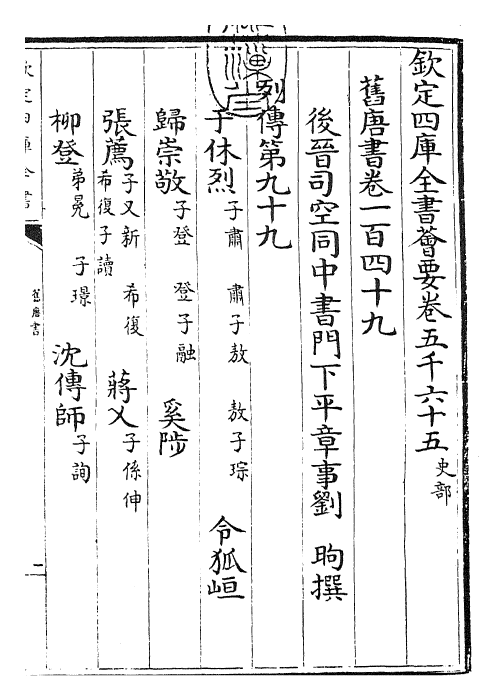 欽定四庫全書薈要卷五千六十五 史部
舊唐書卷一百四十九
後晉司空同中書門下平章事劉 昫撰
列傳第九十九
于休烈 子肅 肅子敖 敖子琮 令狐峘
歸崇敬 子登 登子融 奚陟
張薦 子又新 希復 希復子讀 蔣乂 子係伸
柳登 弟冕 子璟 沈傳師 子詢
欽定四庫全書
舊唐書